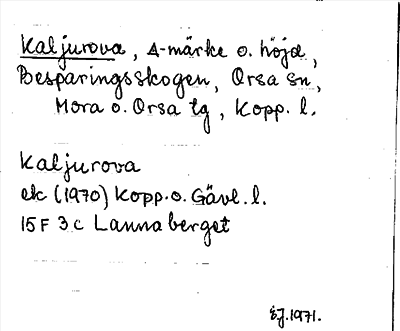 Kaljurova, A-märke o. höjd,
Besparingsskogen, Orsa sn,
Mora o. Orsa tg, Kopp. l.
Kaljurova
ek (1970) Kopp. o. Gävl. l.
15F 3c Lannaberget
EJ. 1971.